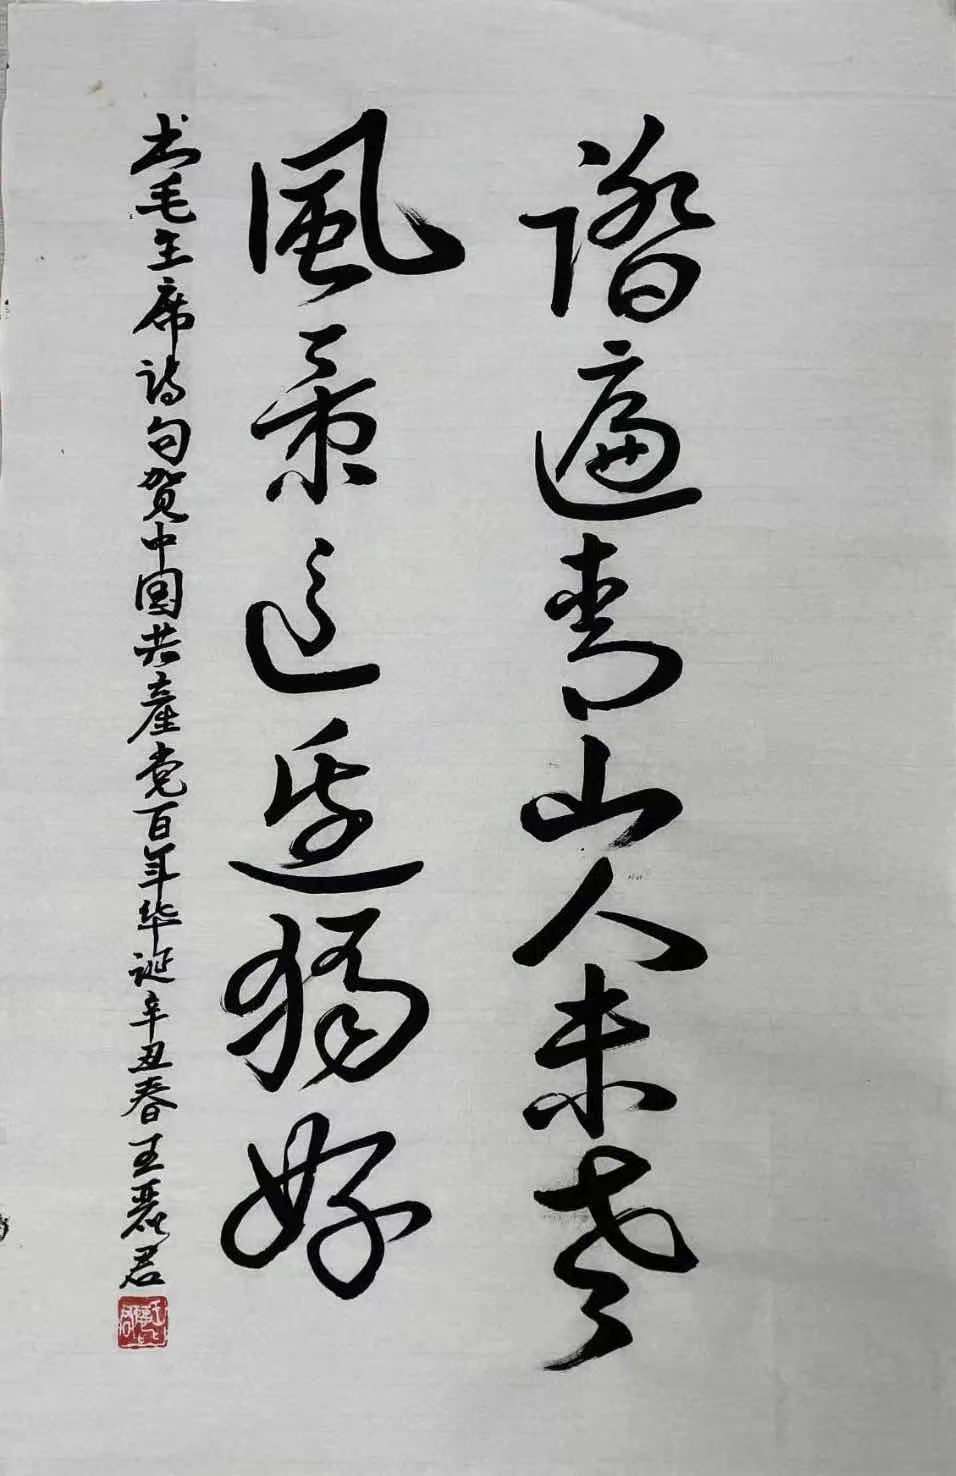 踏遍青山人未老
風景這邊獨好
书毛主席诗句贺中国共產党百年华诞辛丑春王麗君